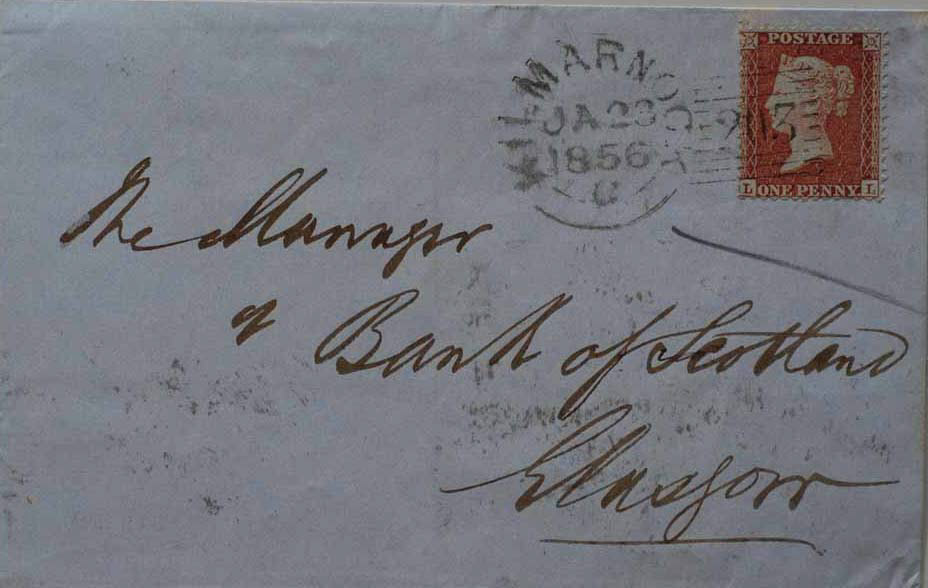 POSTAGE
JA 23
1856
L ONE PENNY L
The Manager
Bank of Scotland
Glasgow